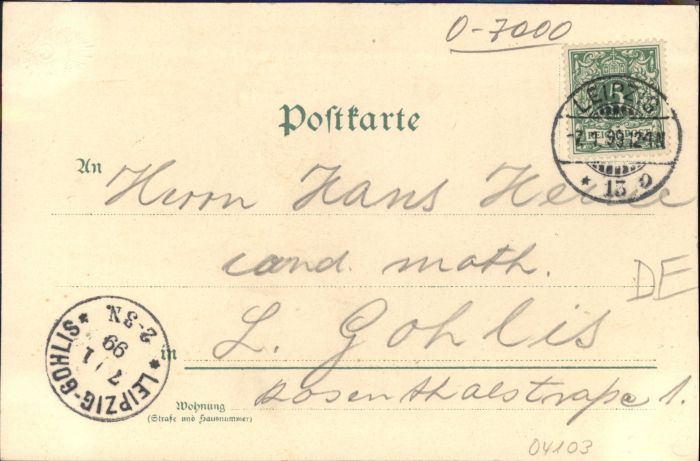 0-7000
LEIPZIG
7.1.99 12-1N
* 13
Postkarte
An
Herrn Hans
cand. math.
DE
in L. Gohlis
Rosenthalstraße 1.
Wohnung
(Straße und Hausnummer)
* LEIPZIG-GOHLIS *
7 1
99
2-3N.
04103